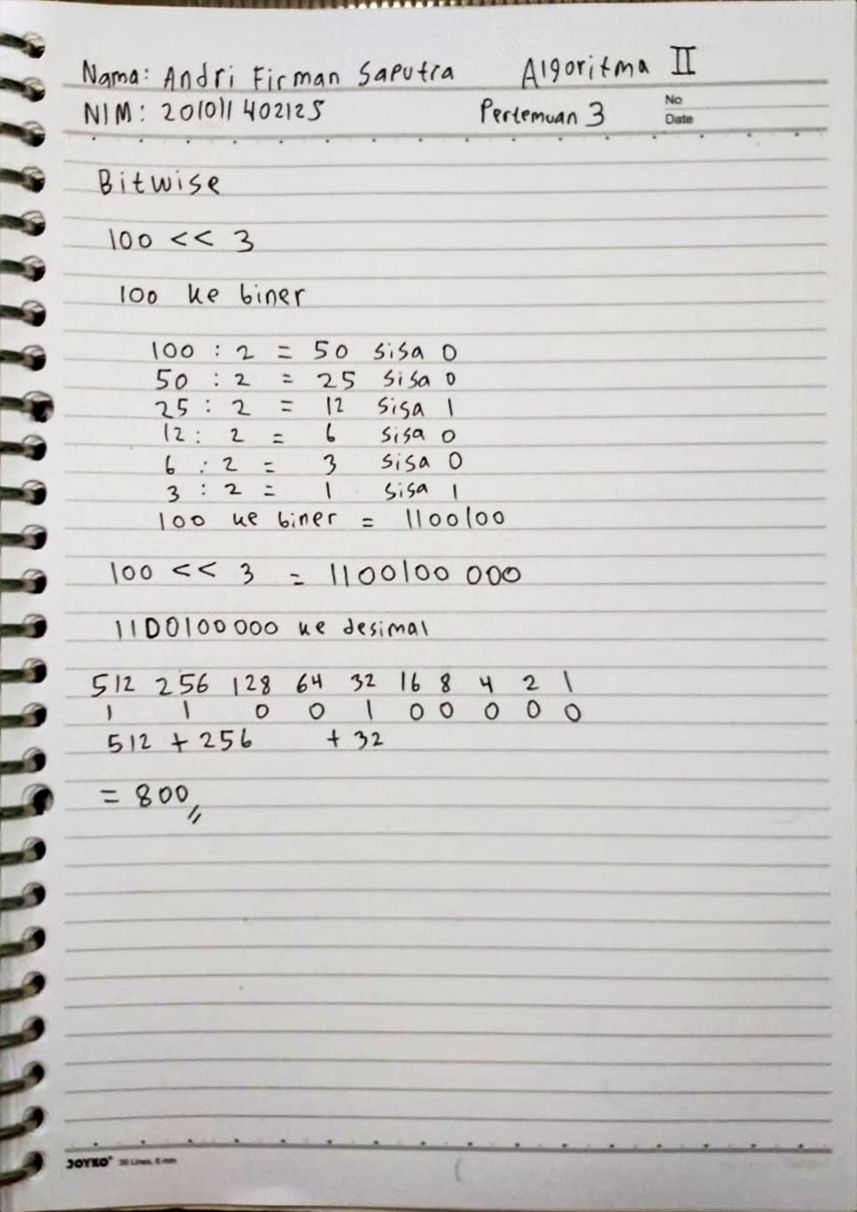 Nama: Andri Firman Saputra Algoritma II
NIM: 201011402125 Pertemuan 3
No
Date
Bitwise
100 << 3
100 ke biner
100 : 2 = 50 sisa 0
50 : 2 = 25 sisa 0
25 : 2 = 12 sisa 1
12 : 2 = 6 sisa 0
6 : 2 = 3 sisa 0
3 : 2 = 1 sisa 1
100 ke biner = 1100100
100 << 3 = 1100100 000
1100100000 ke desimal
512 256 128 64 32 16 8 4 2 1
1 1 0 0 1 0 0 0 0 0
512 + 256 + 32
= 800
JOYKO